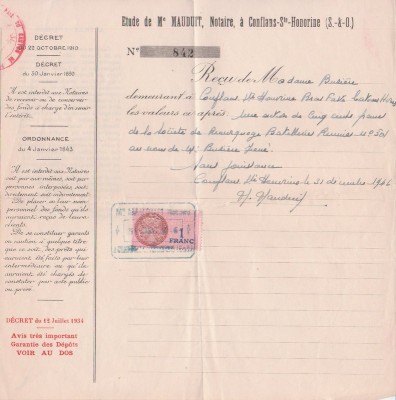 Etude de Me MAUDUIT, Notaire, à Conflans-Ste-Honorine (S.-&-O.)
N° 842
Reçu de Madame Buzière
demeurant à Conflans Ste Honorine
les valeurs ci après une action de Cinq cents francs
de la Société de Remorquage
au nom de Mr Buzière René
Sans jouissance
Conflans Ste Honorine le 21 1946
1
FRANC
DÉCRET
du 22 OCTOBRE 1910
DÉCRET
du 30 Janvier 1890
Il est interdit aux Notaires
de recevoir ou de conserver
des fonds à charge d'en servir
l'intérêt.
ORDONNANCE
du 4 Janvier 1843
Il est interdit aux Notaires
soit par eux-mêmes, soit par
personnes interposées, soit
directement, soit indirectement
De placer en leur nom
personnel des fonds qu'ils
auraient reçus de leurs
clients.
De se constituer garants
ou cautions à quelque titre
que ce soit, des prêts qui
auraient été faits par leur
intermédiaire ou qu'ils
auraient été chargés de
constater par acte public
ou privé.
DÉCRET du 12 Juillet 1934
Avis très important
Garantie des Dépôts
VOIR AU DOS